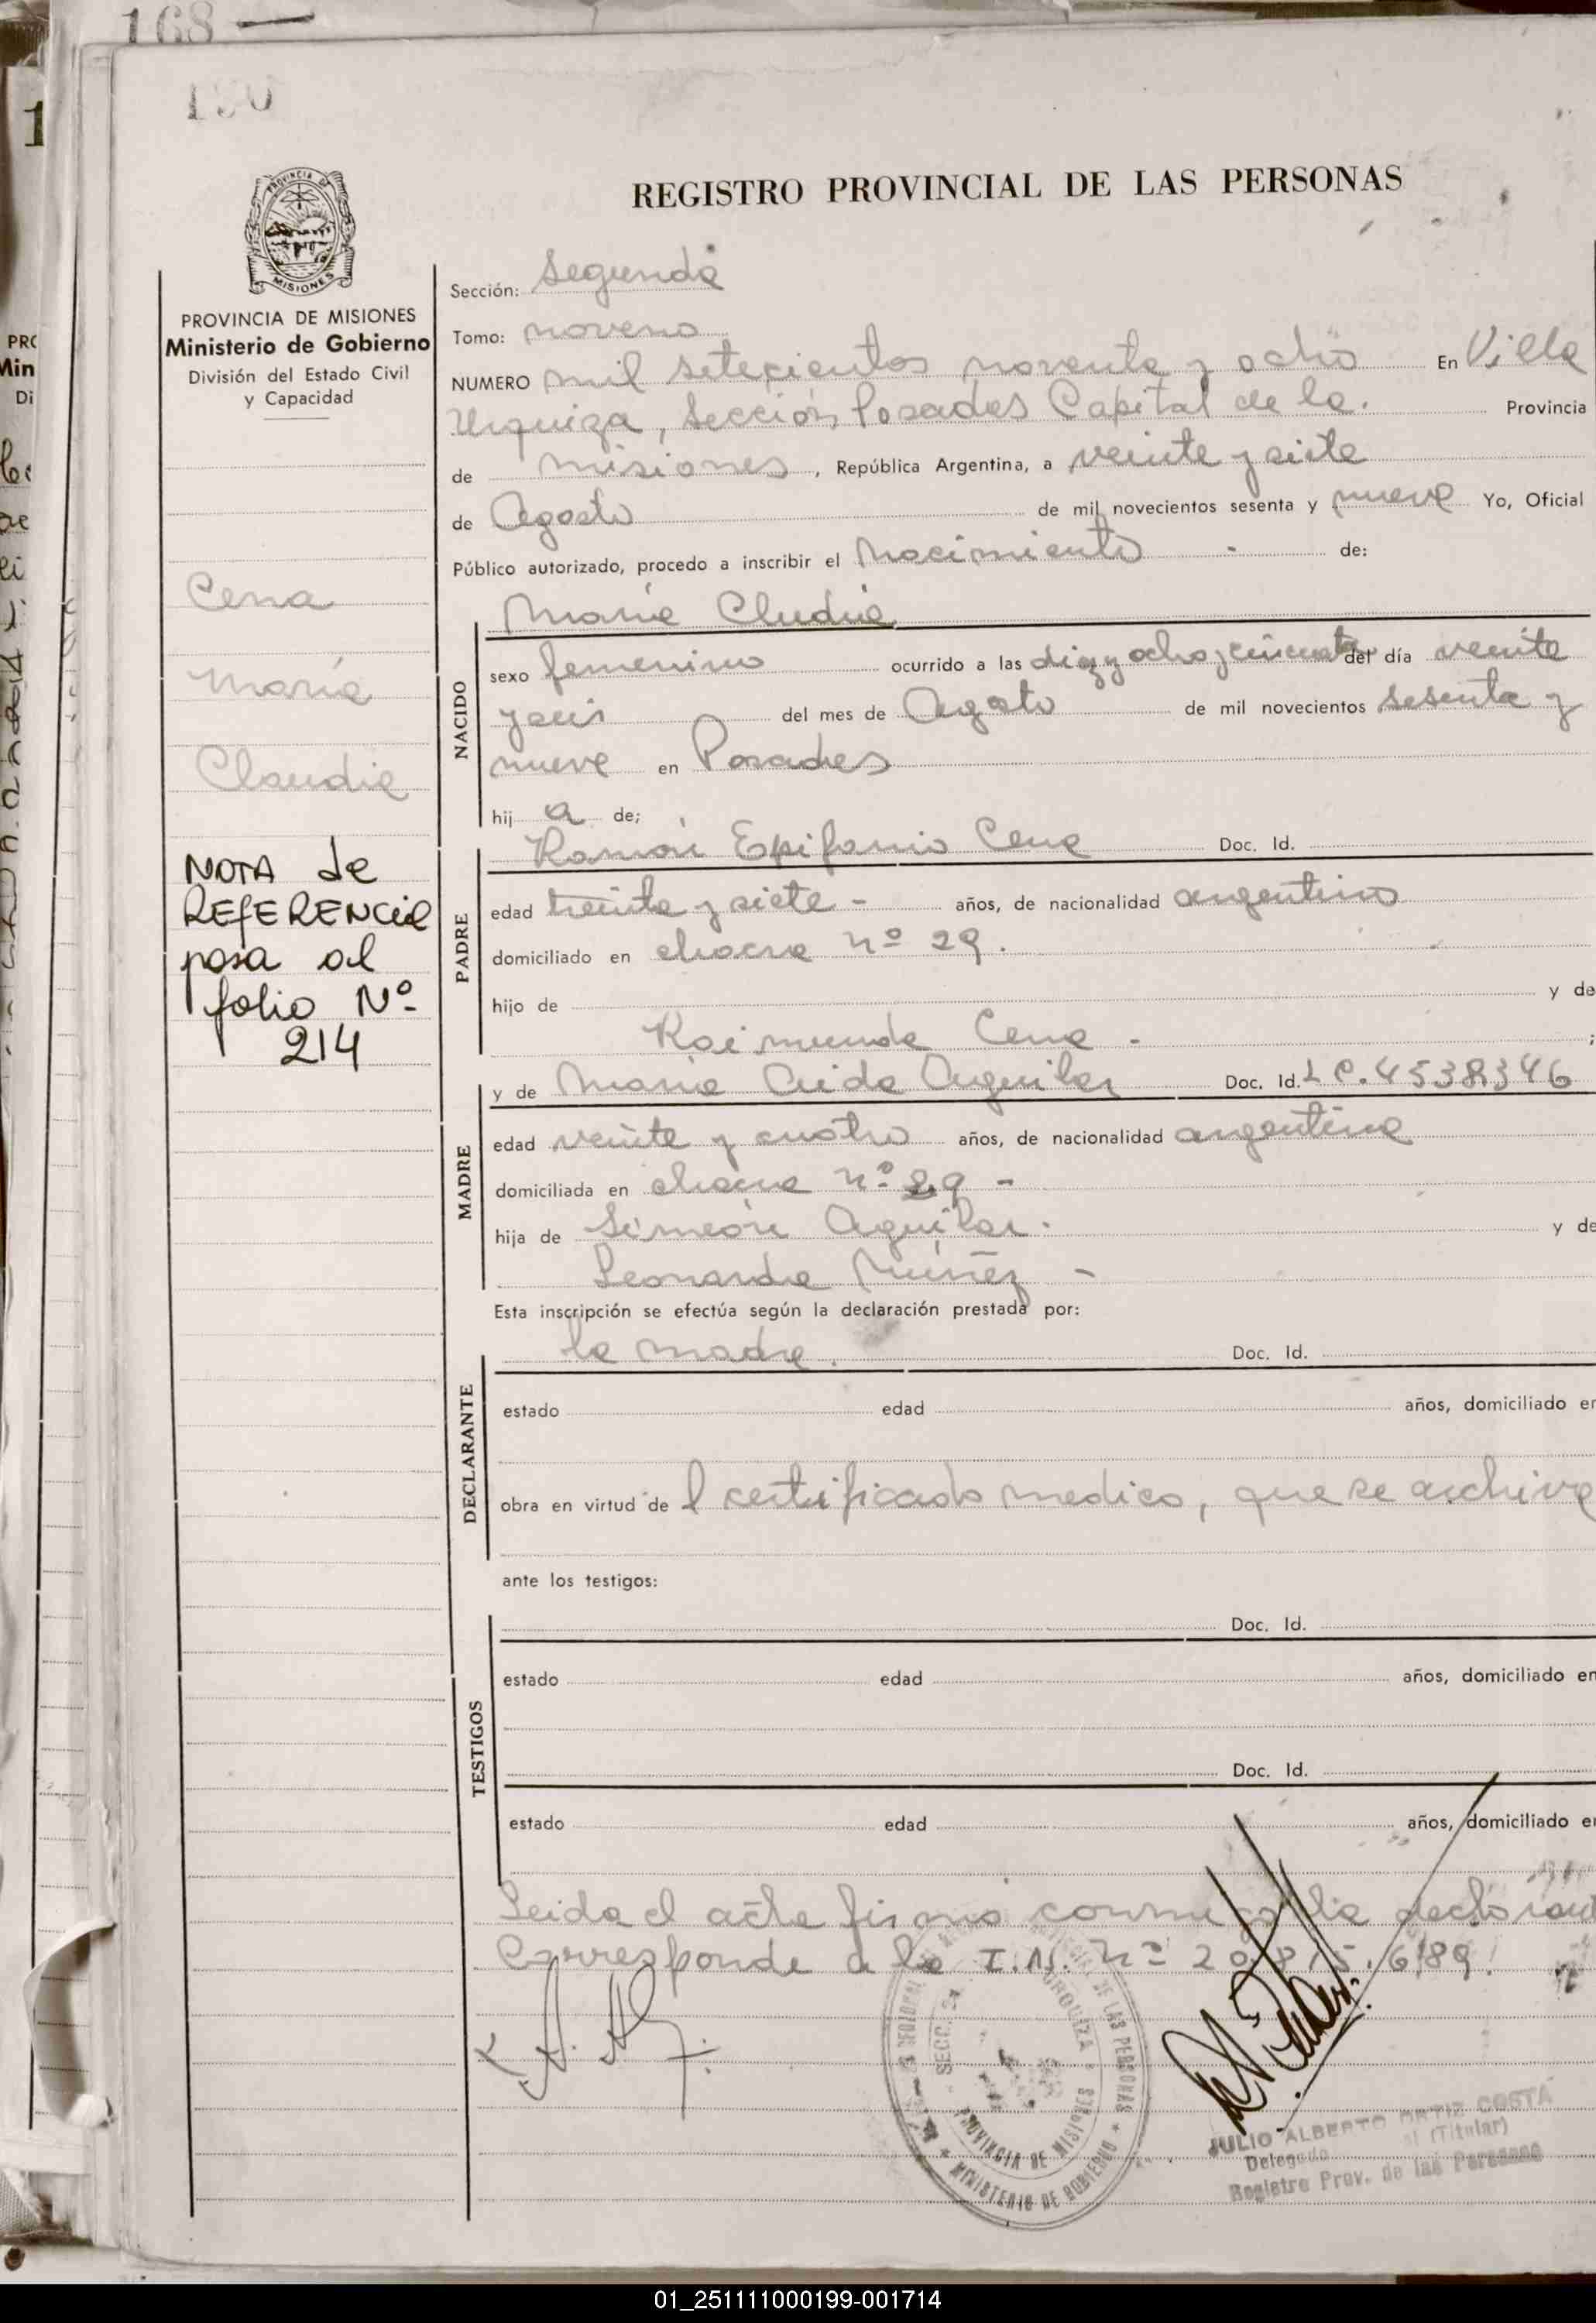 168 —
190
REGISTRO PROVINCIAL DE LAS PERSONAS
PROVINCIA DE MISIONES
Ministerio de Gobierno
División del Estado Civil
y Capacidad
Cena
María
Claudia
NOTA de
REFERENCIA
pasa al
folio Nº
214
Sección: Segunda
Tomo: noveno
NUMERO mil setecientos noventa y ocho En Villa
Urquiza, Sección Posadas Capital de la. Provincia
de misiones, República Argentina, a veinte y siete
de Agosto de mil novecientos sesenta y nueve Yo, Oficial
Público autorizado, procedo a inscribir el Nacimiento - de:
María Cludia
NACIDO
sexo femenino ocurrido a las diez y ocho y cincuenta del día veinte
y seis del mes de Agosto de mil novecientos sesenta y
nueve en Posadas
hij a de;
PADRE
Ramón Epifanio Cena Doc. Id.
edad treinta y siete - años, de nacionalidad argentino
domiciliado en chacra nº 29.
hijo de y de
Raimunda Cena - ;
MADRE
y de María Aida Aguilar Doc. Id. L C. 4538346
edad veinte y cuatro años, de nacionalidad argentina
domiciliada en chacra nº 29 -
hija de Simeón Aguilar. y de
Leonarda Núñez -
Esta inscripción se efectúa según la declaración prestada por:
DECLARANTE
la madre. Doc. Id.
estado edad años, domiciliado en
obra en virtud de l certificado medico, que se archiva
ante los testigos:
TESTIGOS
Doc. Id.
estado edad años, domiciliado en
Doc. Id.
estado edad años, domiciliado en
Leida el acta firma conmigo la declarant
Corresponde a la I.N. nº 20.815.689.
SECC. 2a
URQUIZA
DE LAS PERSONAS
PROVINCIA DE MISIONES
MINISTERIO DE GOBIERNO
JULIO ALBERTO ORTIZ COSTA
Delegado (Titular)
Registro Prov. de las Personas
01_251111000199-001714